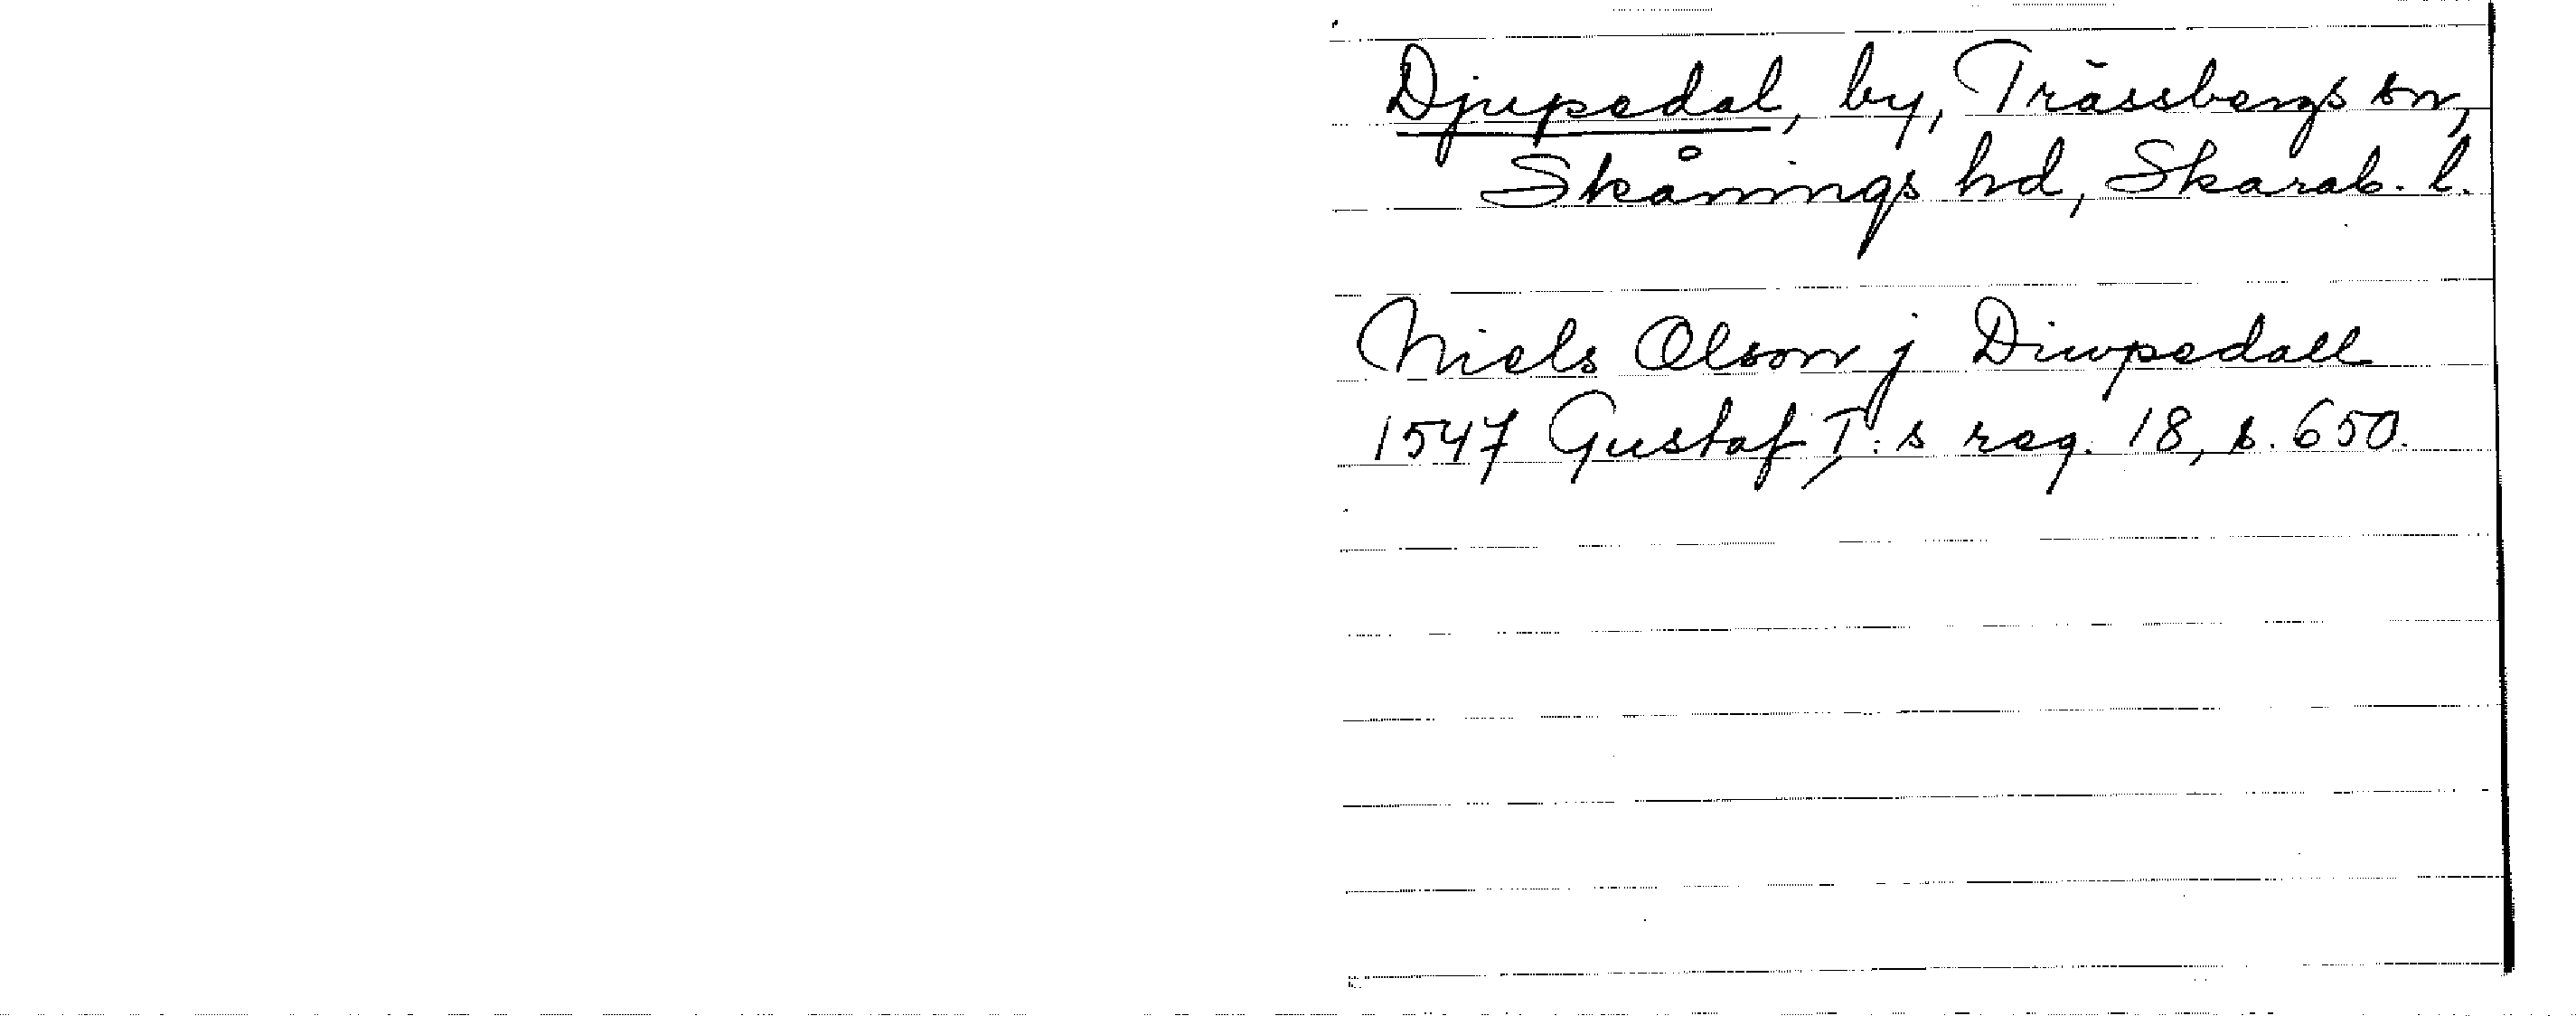 Djupedal, by, Trässbergs sn,
Skånings hd, Skarab. l.
Niels Olson j Diwpedall
1547 Gustaf I:s reg. 18, s. 650.